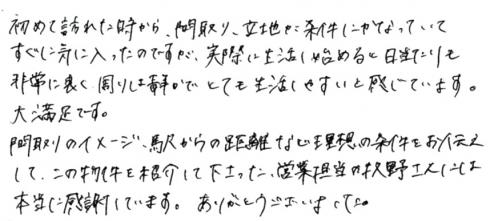 初めて訪れた時から、間取り、立地が条件にかなっていて
すぐに気に入ったのですが、実際に生活し始めると日当たりも
非常に良く、周りは静かでとても生活しやすいと感じています。
大満足です。
間取りのイメージ、駅からの距離など理想の条件をお伝え
して、この物件を紹介して下さった、営業担当の牧野さんには
本当に感謝しています。ありがとうございました。